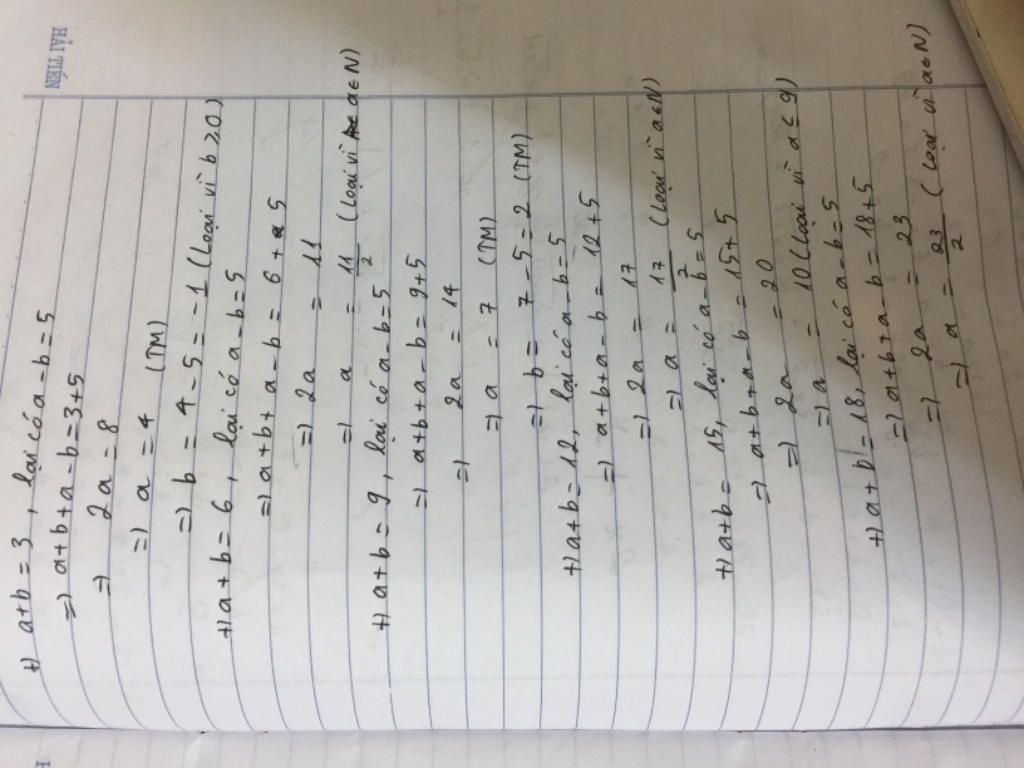 HẢI TIẾN
+) a+b = 3, lại có a-b = 5
=) a+b+a-b = 3+5
=) 2a = 8
=) a = 4 (TM)
=) b = 4-5 = -1 (loại vì b ≥ 0)
+) a+b = 6, lại có a-b = 5
=) a+b+a-b = 6+5
=) 2a = 11
=) a = 11/2 (loại vì a ∈ N)
+) a+b = 9, lại có a-b = 5
=) a+b+a-b = 9+5
=) 2a = 14
=) a = 7 (TM)
=) b = 7-5 = 2 (TM)
+) a+b = 12, lại có a-b = 5
=) a+b+a-b = 12+5
=) 2a = 17
=) a = 17/2 (loại vì a ∈ N)
+) a+b = 15, lại có a-b = 5
=) a+b+a-b = 15+5
=) 2a = 20
=) a = 10 (loại vì a ≤ 9)
+) a+b = 18, lại có a-b = 5
=) a+b+a-b = 18+5
=) 2a = 23
=) a = 23/2 (loại vì a ∈ N)